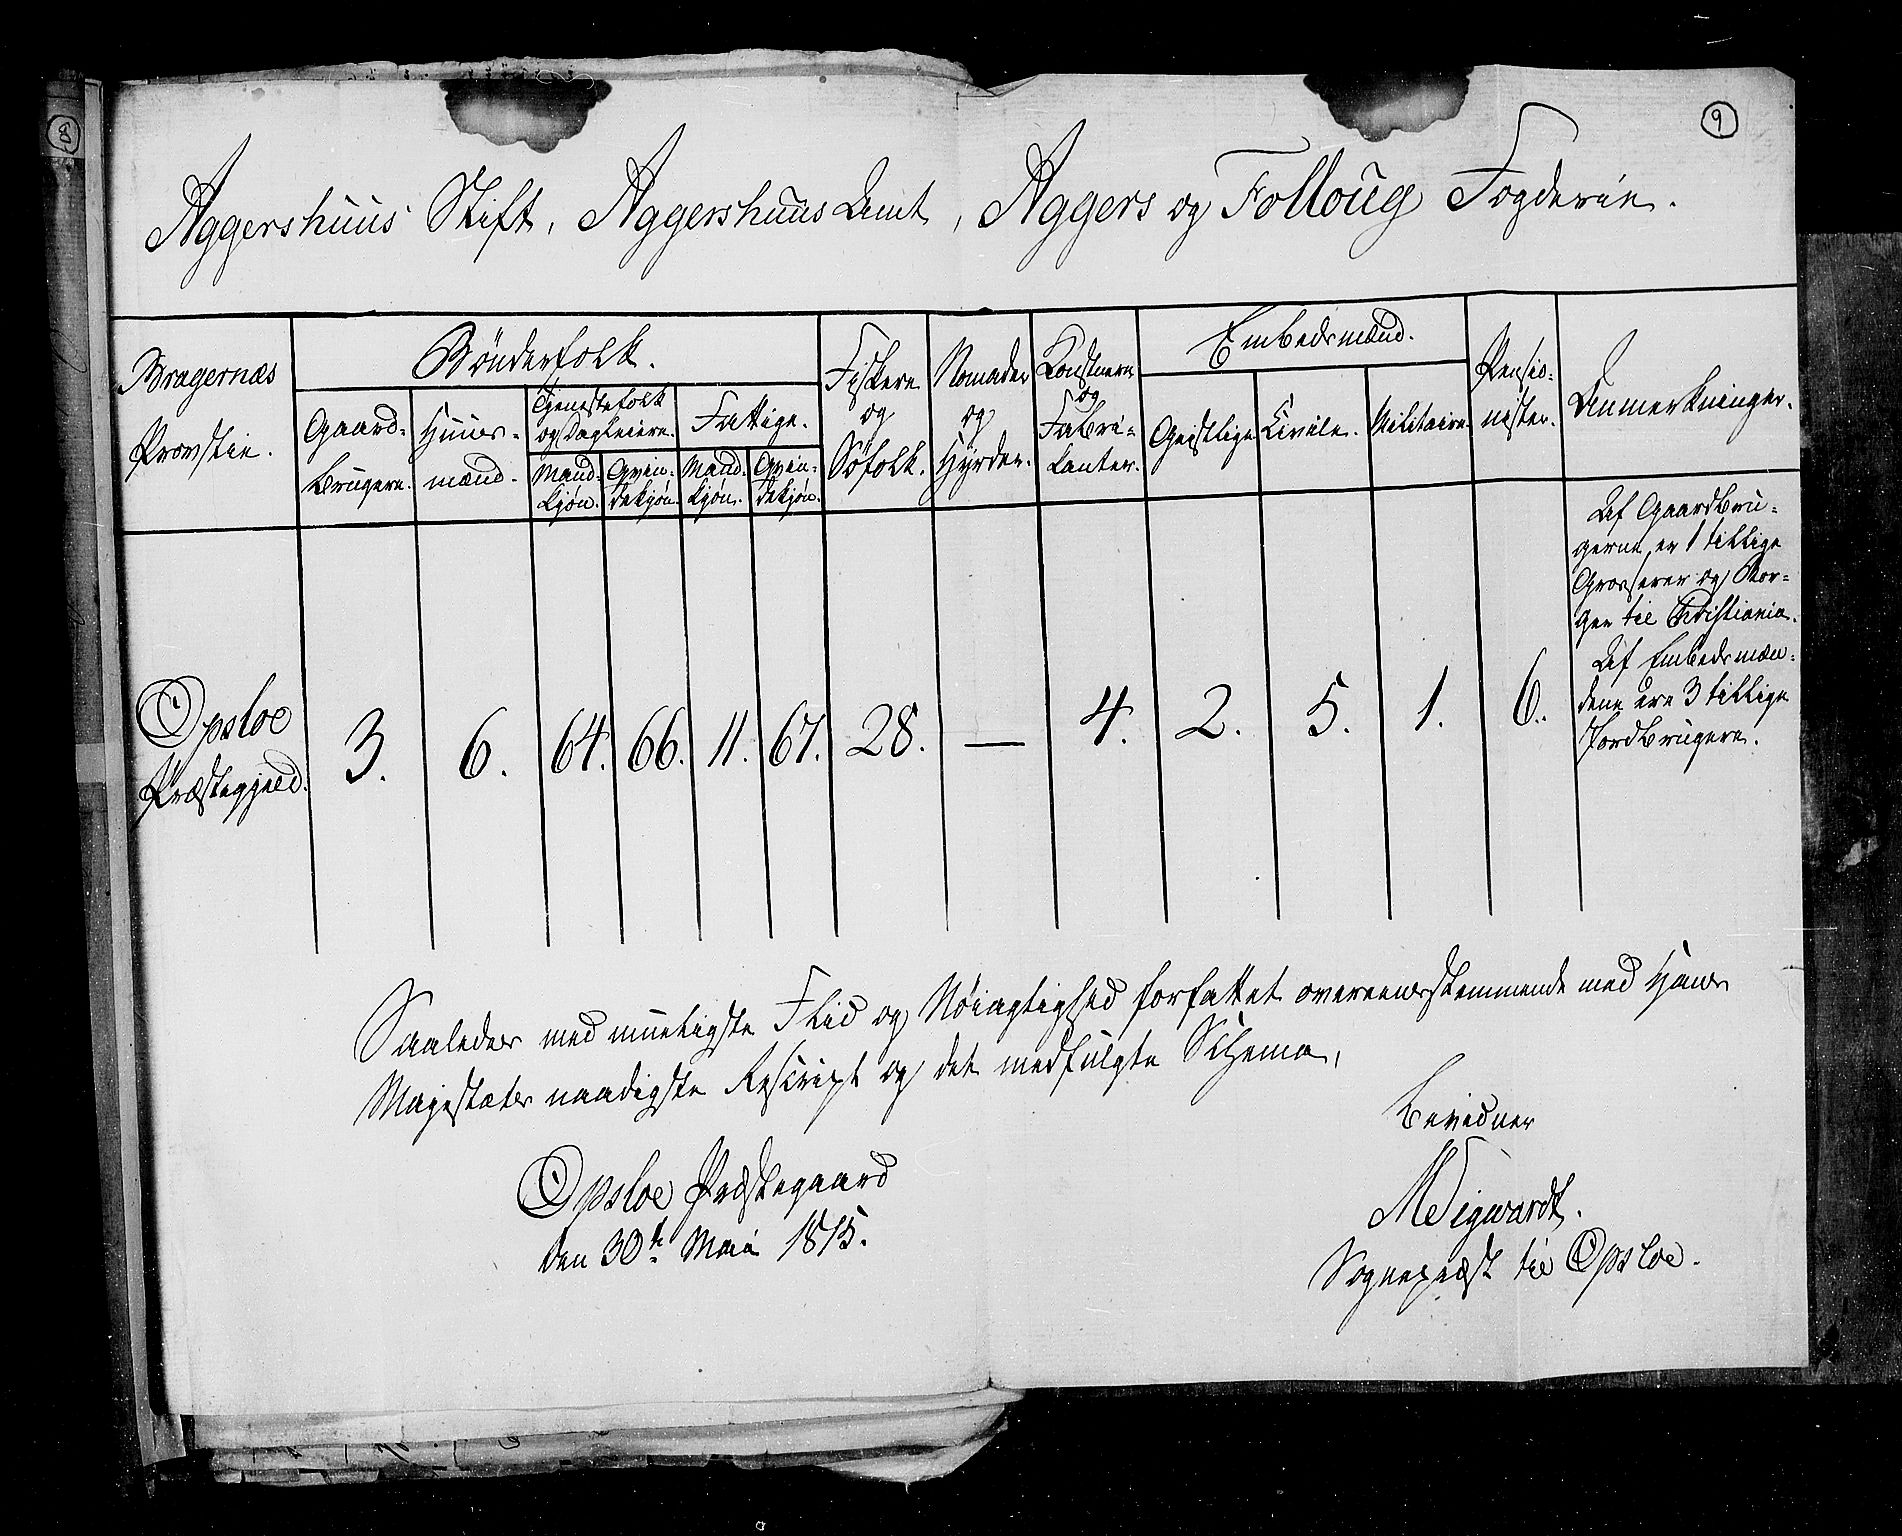 8
9
Aggershuus Stift, Aggershuus Amt, Aggers og Folloug Fogderie.
Bragernæs
Provstie.
Bönderfolk.
Gaard-
brugere.
Huus-
mænd.
Tjenestefolk
og Dagleiere.
Mand-
kjön.
Qvin-
dekjön.
Fattige.
Mand-
kjön.
Qvin-
dekjön.
Fiskere
og
Söfolk.
Nomader
og
Hyrder.
Konstnere
og
Fabri-
kanter.
Embedsmænd.
Geistlige
Civile.
Militaire
Pensio-
nister.
Anmerkninger.
Opsloe
Præstegjeld.
3.
6.
64.
66.
11.
67.
28.
—
4.
2.
5.
1.
6.
Af Gaardbru-
gerne er 1 tillige
Grosserer og Bor-
ger til Christiania.
Af Embedsmæn-
dene ere 3 tillige
Jordbrugere.
Saaledes med mueligste Flid og Nöiagtighed forfattet overeensstemmende med Hans
Majestæts naadigste Rescript og det medfulgte Schema,
bevidner
Opsloe Præstegaard
den 30te Maii 1815.
MSigwardt.
Sognepræst til Opsloe.